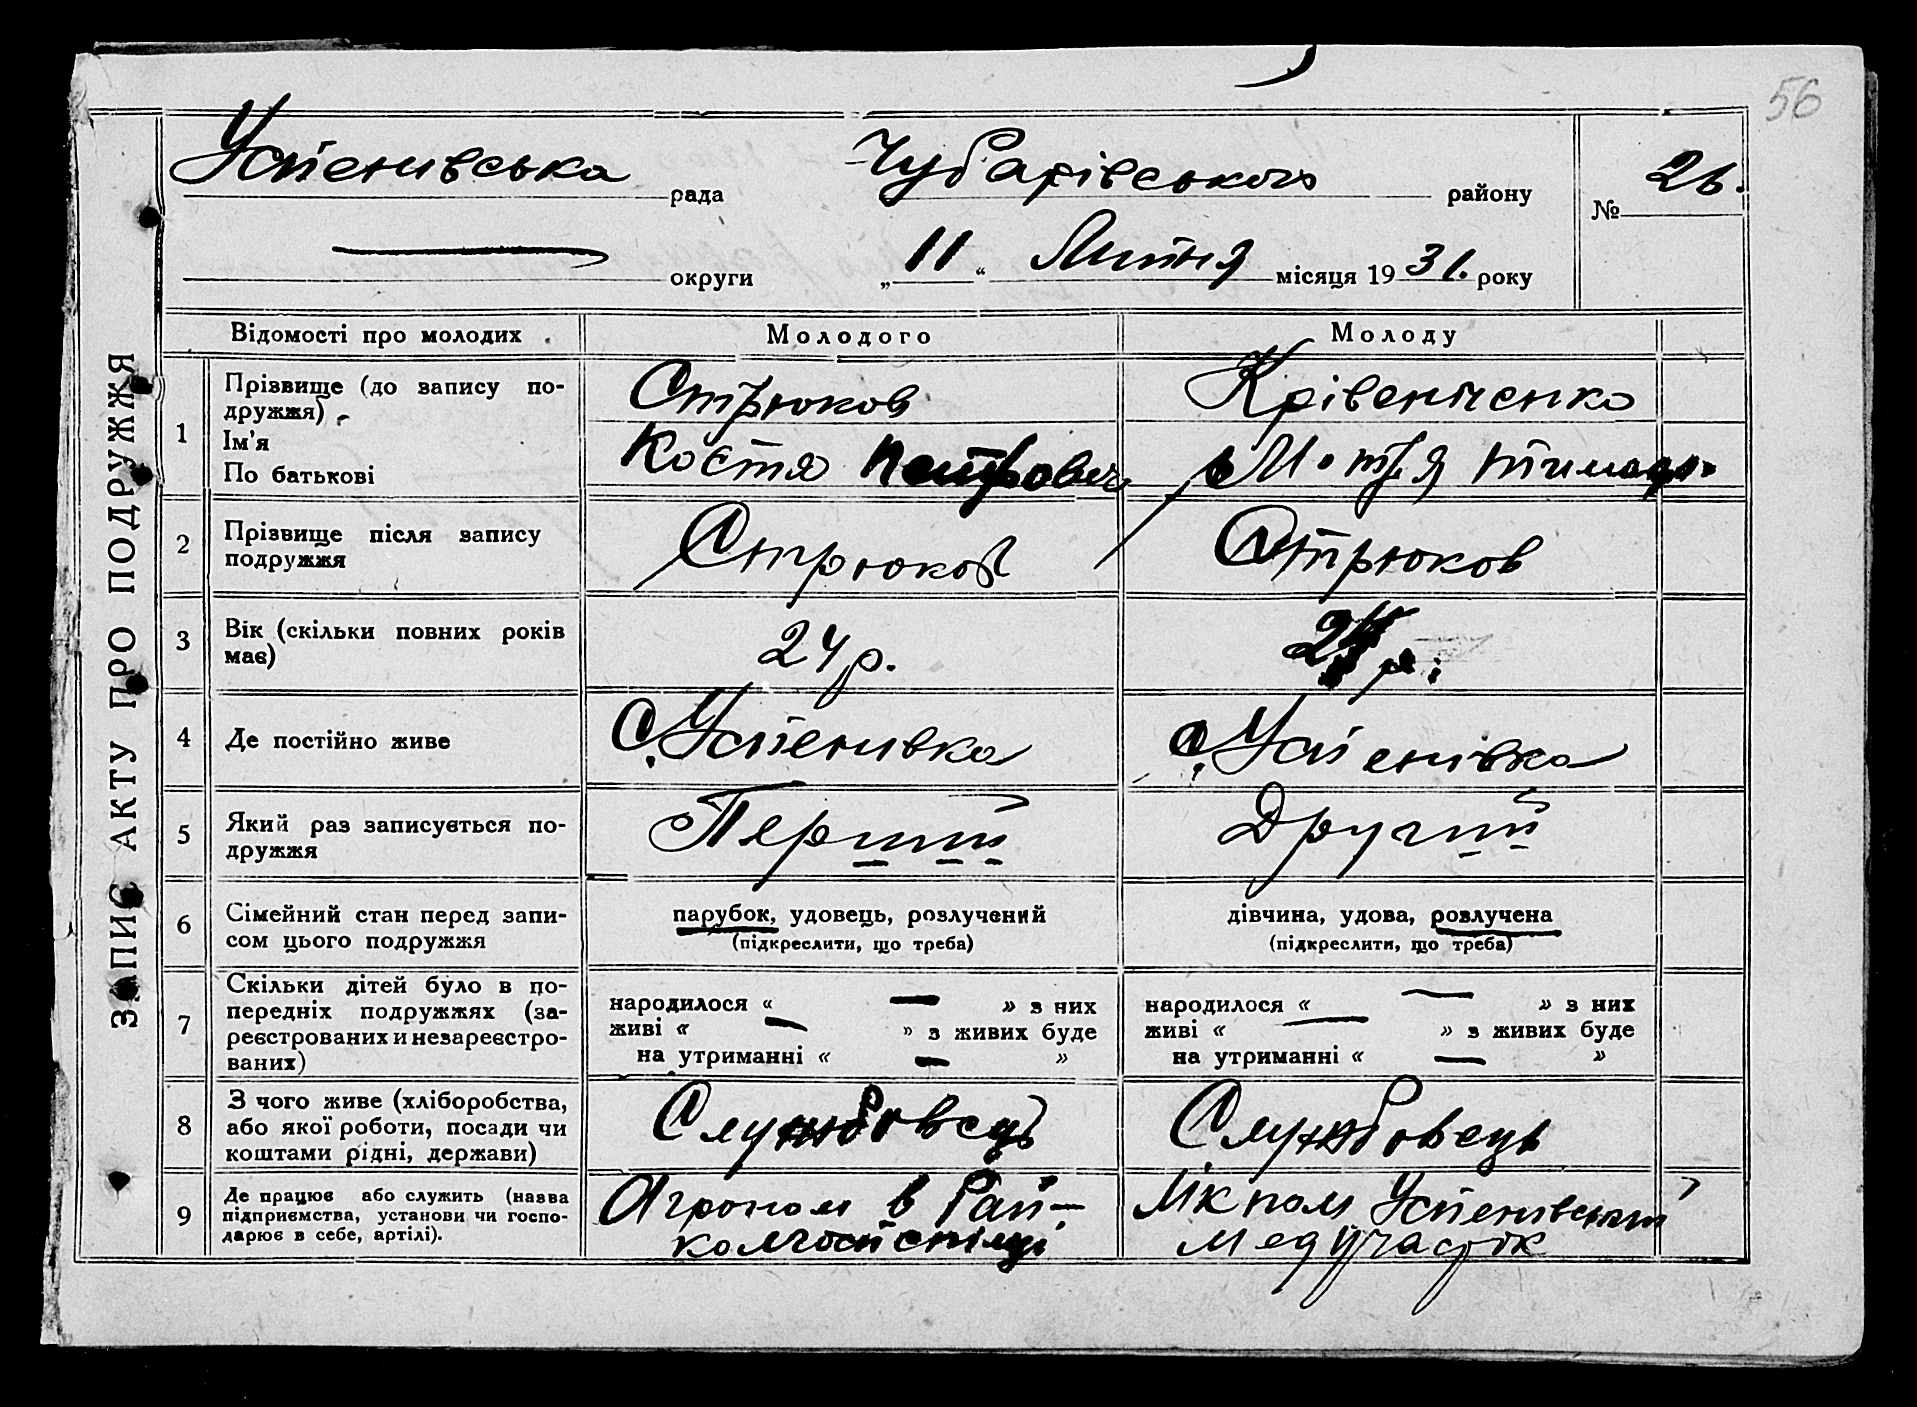 56
Успенивська рада Чубарівського району № 26.
округи „11“ Липня місяця 1931. року
ЗАПИС АКТУ ПРО ПОДРУЖЖЯ
Відомості про молодих Молодого Молоду
1 Прізвище (до запису по-
дружжя) Стрюков
Ім'я
По батькові Костя Петрович Мотря
2 Прізвище після запису
подружжя Стрюков Стрюков
3 Вік (скільки повних років
має) 24 р.
4 Де постійно живе с. Успенивка с. Успенівка
5 Який раз записується по-
дружжя Перший Другий
6 Сімейний стан перед запи-
сом цього подружжя парубок, удовець, розлучений дівчина, удова, розлучена
(підкреслити, що треба) (підкреслити, що треба)
7 Скільки дітей було в по-
передніх подружжях (за-
реєстрованих и незареєстро-
ваних) народилося « — » з них народилося « — » з них
живі « — » з живих буде живі « — » з живих буде
на утриманні « — » на утриманні « — »
8 З чого живе (хліборобства,
або якої роботи, посади чи
коштами рідні, держави) Службовець Службовець
9 Де працює або служить (назва
підприємства, установи чи госпо-
дарює в себе, артілі). Агроном в Рай- Успенивський
колгоспспілці медучасток